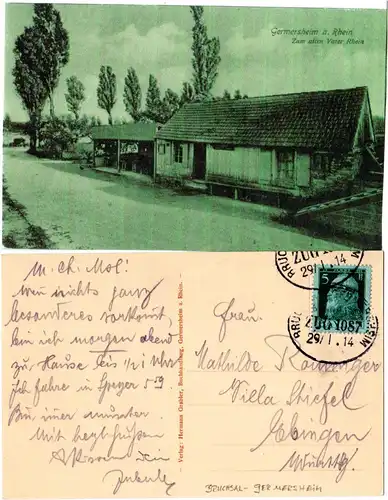 Germersheim a. Rhein
Zum alten Vater Rhein
M. Ch. Mol!
Wenn nichts ganz
besonderes vorkommt
bin ich morgen abend
zu Hause bis ½1 Uhr
Ich fahre in Speyer 5 59
Bin immer munter.
Mit herzl. Grüßen
Dein
Verlag: Hermann Gräbler, Buchhandlung, Germersheim a. Rhein.
Frau
Mathilde
Villa Stiefel
Ebingen
Württbg
BRUCHSAL - GERMERSHEIM
ZUG
29/1.14
5
5
ZUG 1087
29/1.14